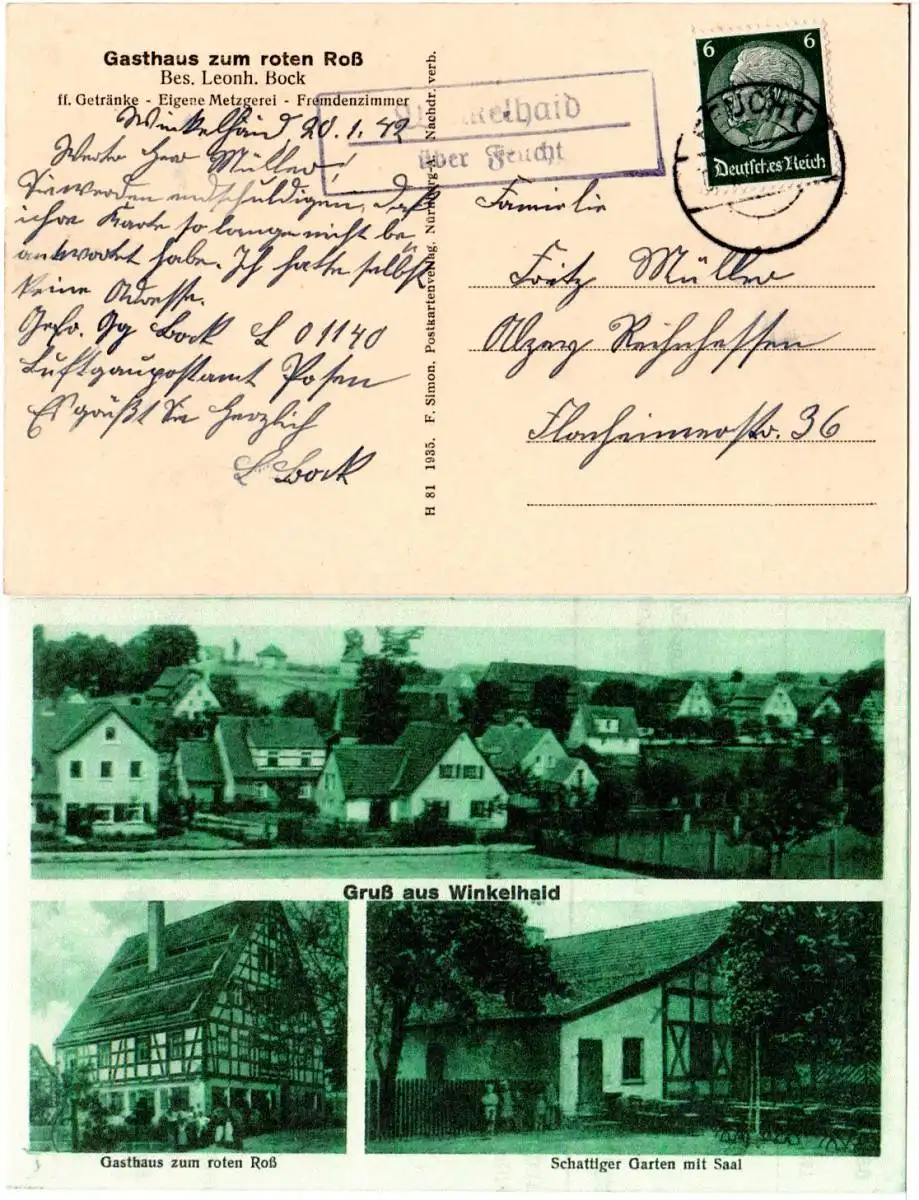 Gasthaus zum roten Roß
Bes. Leonh. Bock
ff. Getränke - Eigene Metzgerei - Fremdenzimmer
Winkelhaid 20.1.42
Werte Herr Müller!
Sie werden endschuldigen, daß
ihre Karte so lange nicht be
antwortet habe. Ich hatte selbst
keine Adresse.
Gefr. Gg Bock L 01140
Luftgaupostamt Posen
Es grüßt Sie herzlich
L Bock
H 81 1935. F. Simon, Postkartenverlag, Nürnberg-A. Nachdr. verb.
Winkelhaid
über Feucht
6 6
Deutsches Reich
FEUCHT
Familie
Fritz Müller
Alzey Reihnhessen
Flonheimerstr. 36
Gruß aus Winkelhaid
Gasthaus zum roten Roß
Schattiger Garten mit Saal